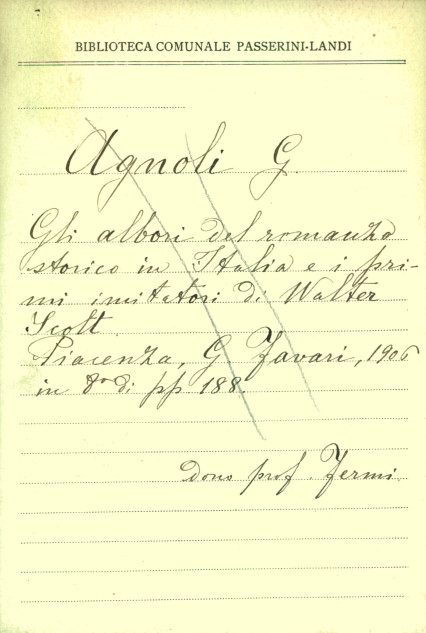 BIBLIOTECA COMUNALE PASSERINI-LANDI
Agnoli G.
Gli albori del romanzo
storico in Italia e i pri-
mi imitatori di Walter
Scott.
Piacenza, G. Favari, 1906
in 8º di pp 188.
Dono prof. Fermi.